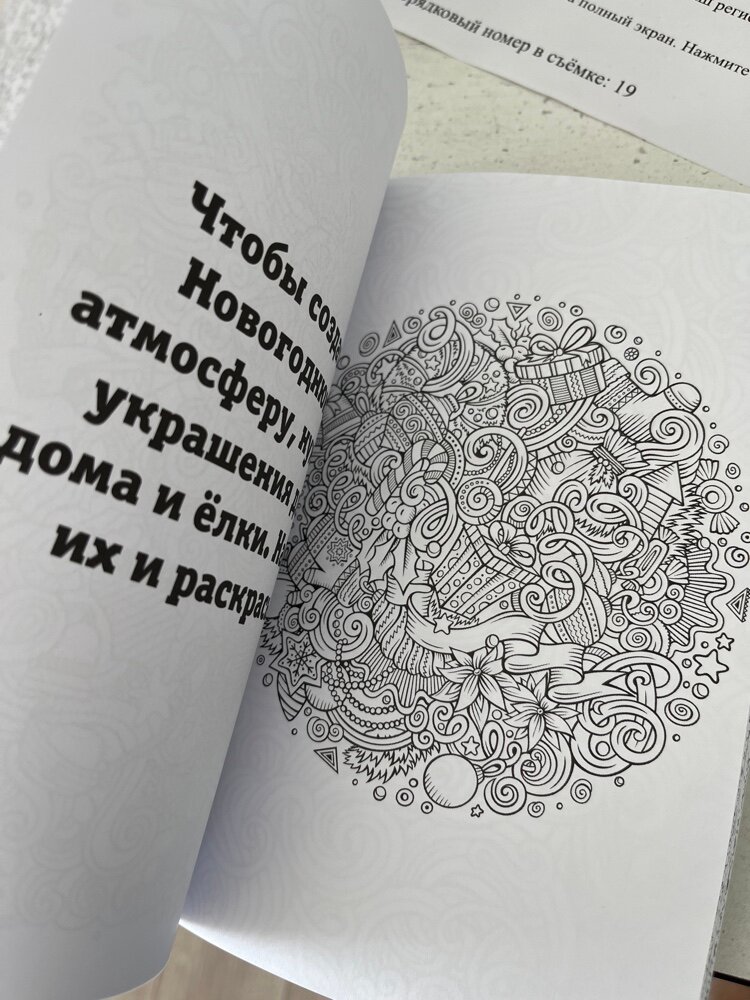 ш реги
а полный экран. Нажмите
рядковый номер в съёмке: 19
Чтобы созд
Новогодн
атмосферу, ну
украшения
дома и ёлки. На
их и раскрас